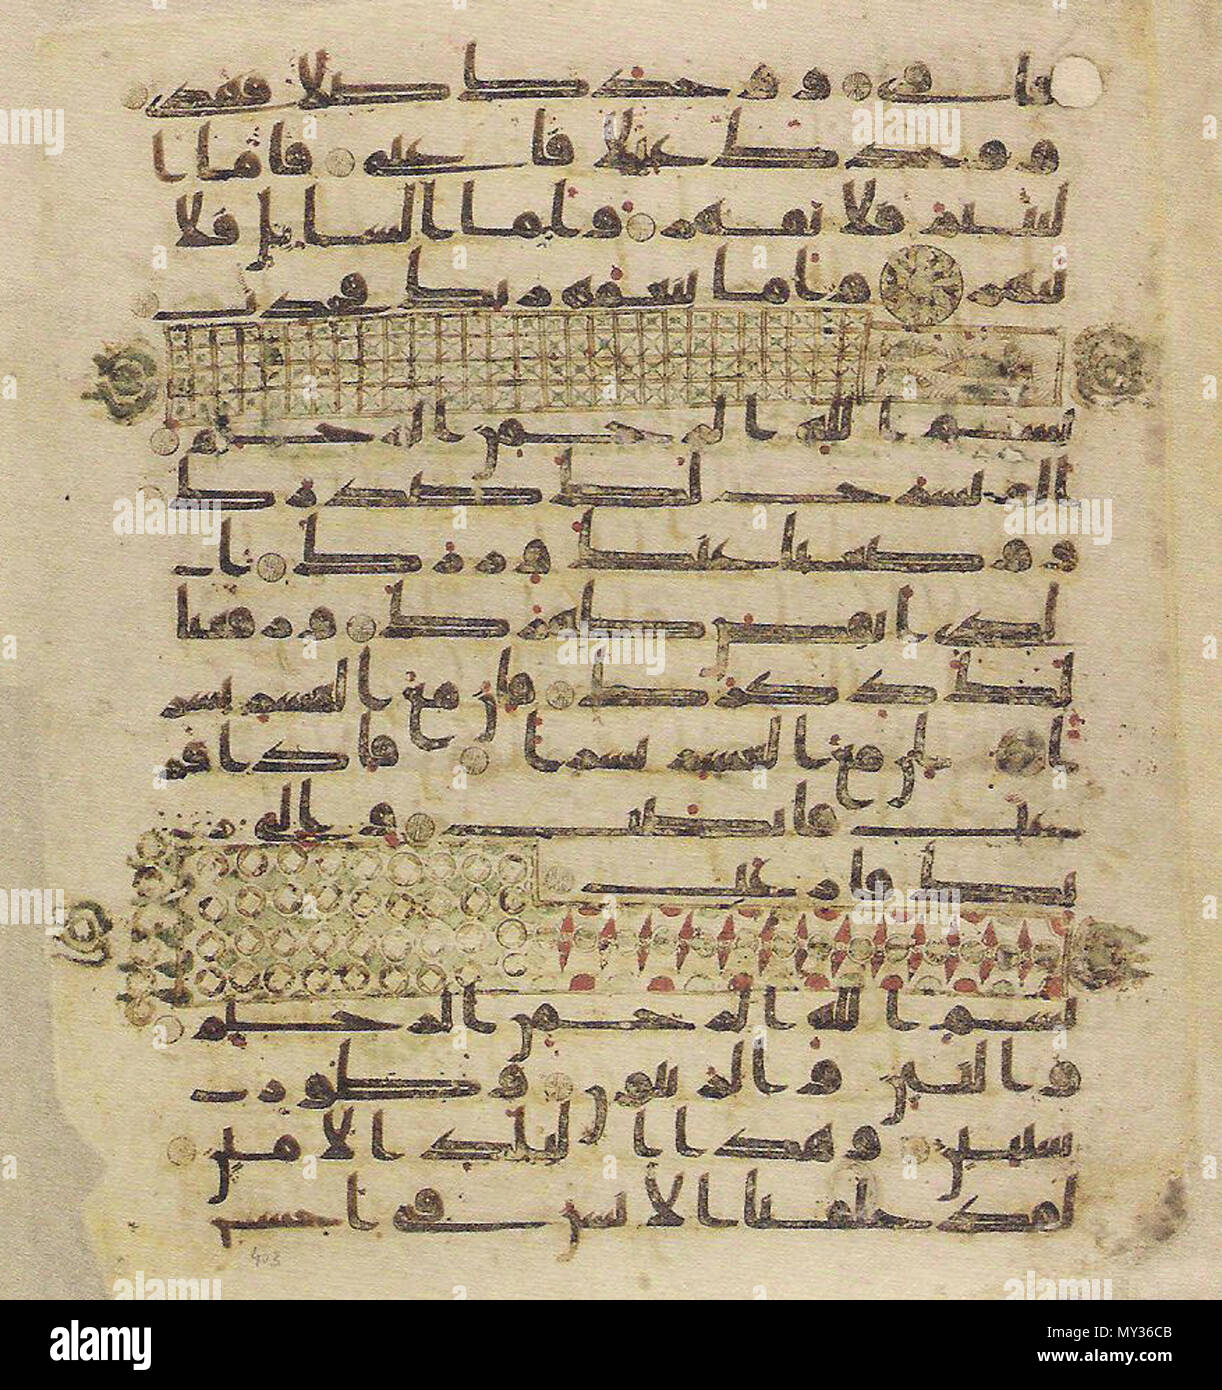 فاوى ووجدك ضالا فهدى
ووجدك عيلا فاغنى فاما ا
ليتيم فلا تقهر واما السايل فلا
تنهر واما بنعمة ربك فحدث
بسم الله الرحمن الرحيم
الم نشرح لك صدرك
ووضعنا عنك وزرك ا
لذى انقض ظهرك ورفعنا
لك ذكرك فان مع العسر يسر
ا ان مع العسر يسرا فاذا فر
غت فانصب والى ر
بك فارغب
بسم الله الرحمن الرحيم
والتين والزيتون وطور
سينين وهذا البلد الامين
لقد خلقنا الانسن فى احسن
403
alamy
Image ID: MY36CB
www.alamy.com